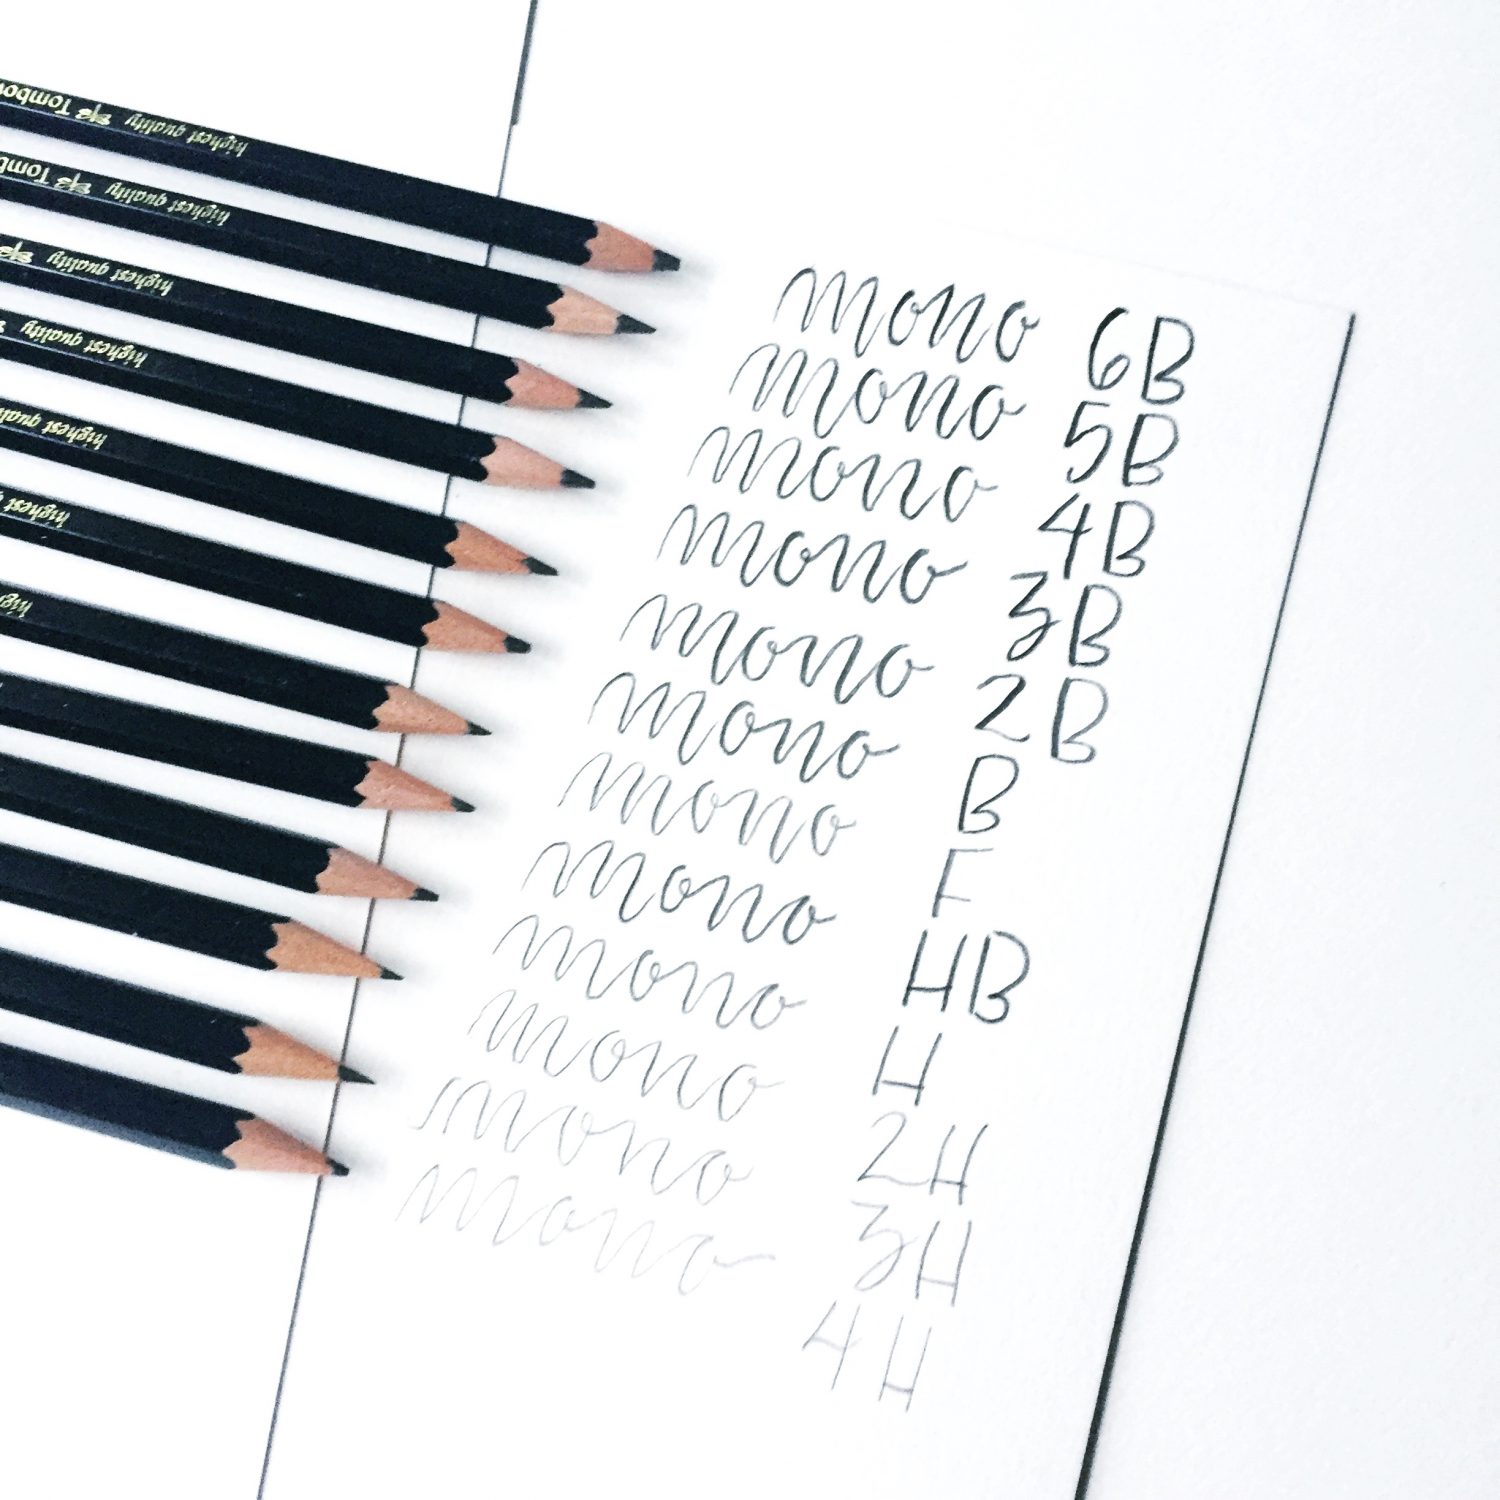 highest quality Tombow
highest quality Tomb
highest quality
highest quality
highest qual
highest
high
mono 6B
mono 5B
mono 4B
mono 3B
mono 2B
mono B
mono F
mono HB
mono H
mono 2H
mono 3H
mono 4H